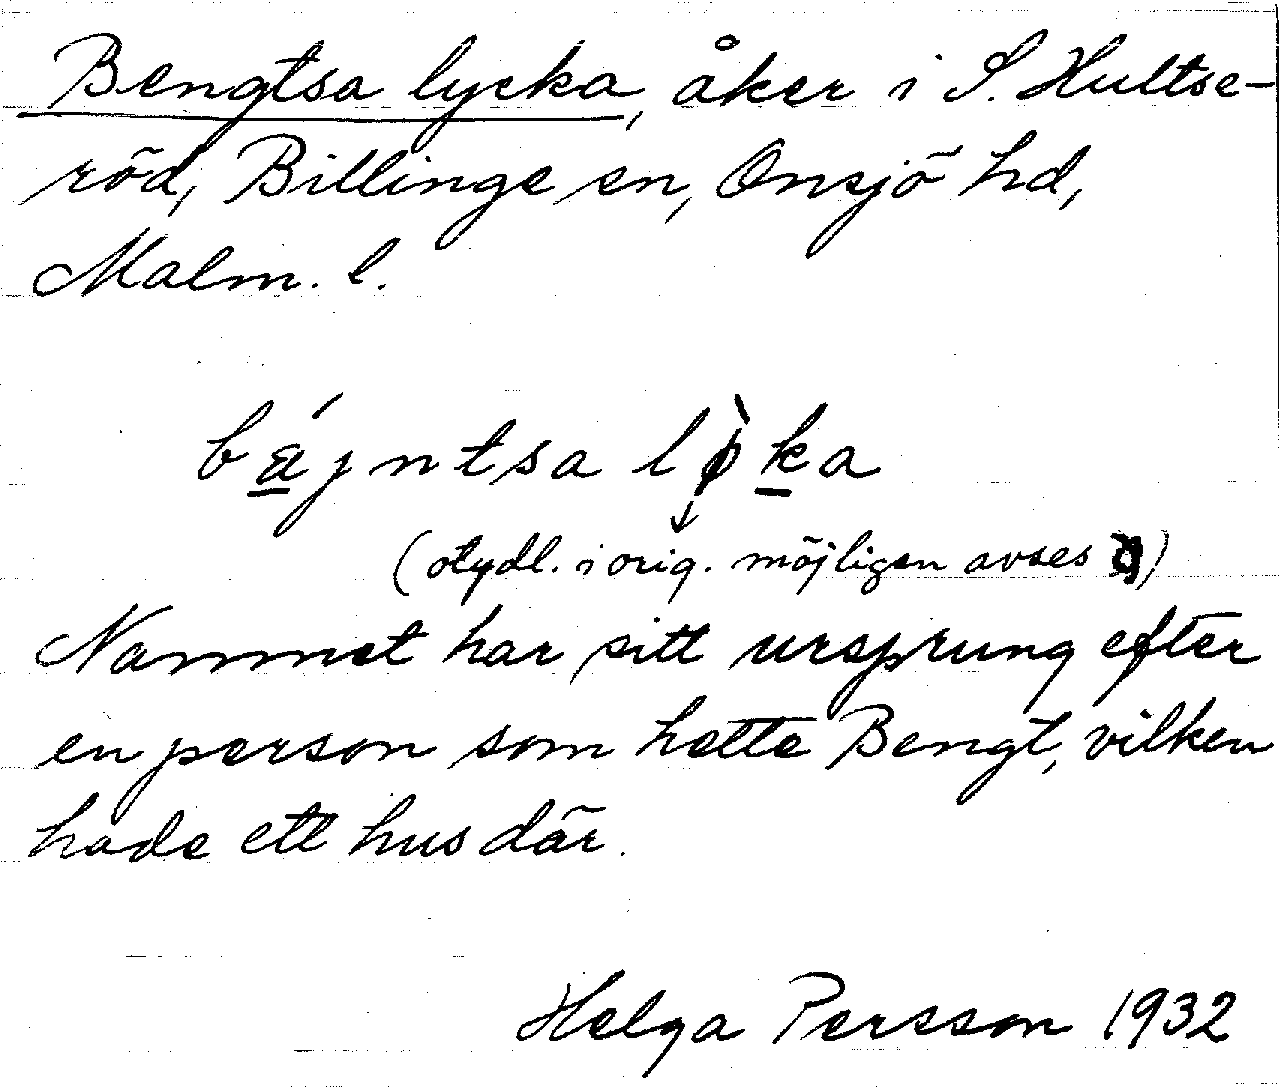 Bengtsa lycka, åker i S. Hultse-
röd, Billinge sn, Onsjö hd,
Malm. l.
bä́jntsa lø̀ka
(otydl. i orig. möjligen avses )
Namnet har sitt ursprung efter
en person som hette Bengt, vilken
hade ett hus där.
Helga Persson 1932